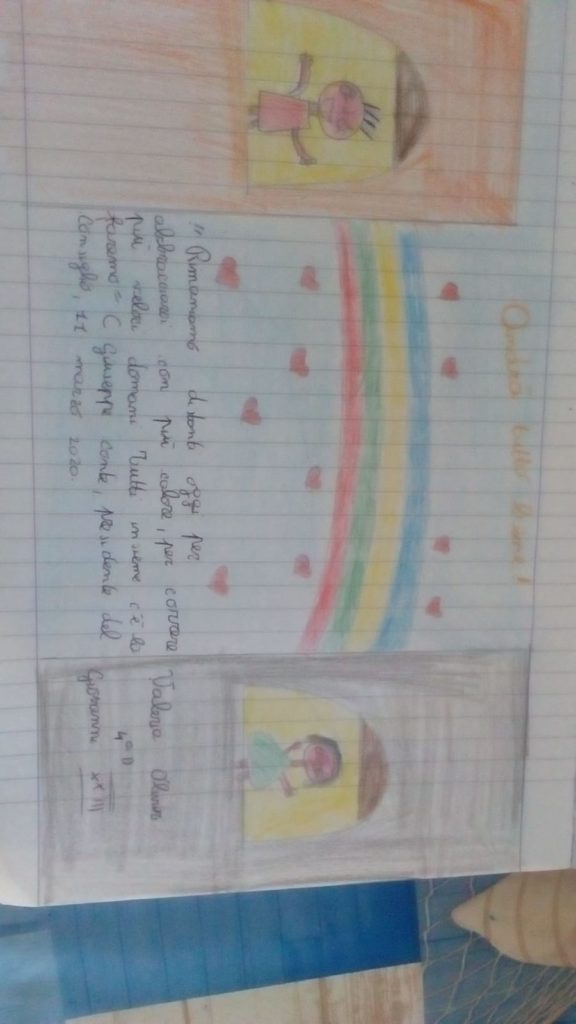 Andrà tutto bene!
"Rimaniamo distanti oggi per
abbracciarci con più calore, per correre
più veloci domani Tutti insieme c'è la
faremo = C Giuseppe Conte, presidente del
Consiglio, 11 marzo 2020.
Valeria
4ª D
Giovanni XXIII